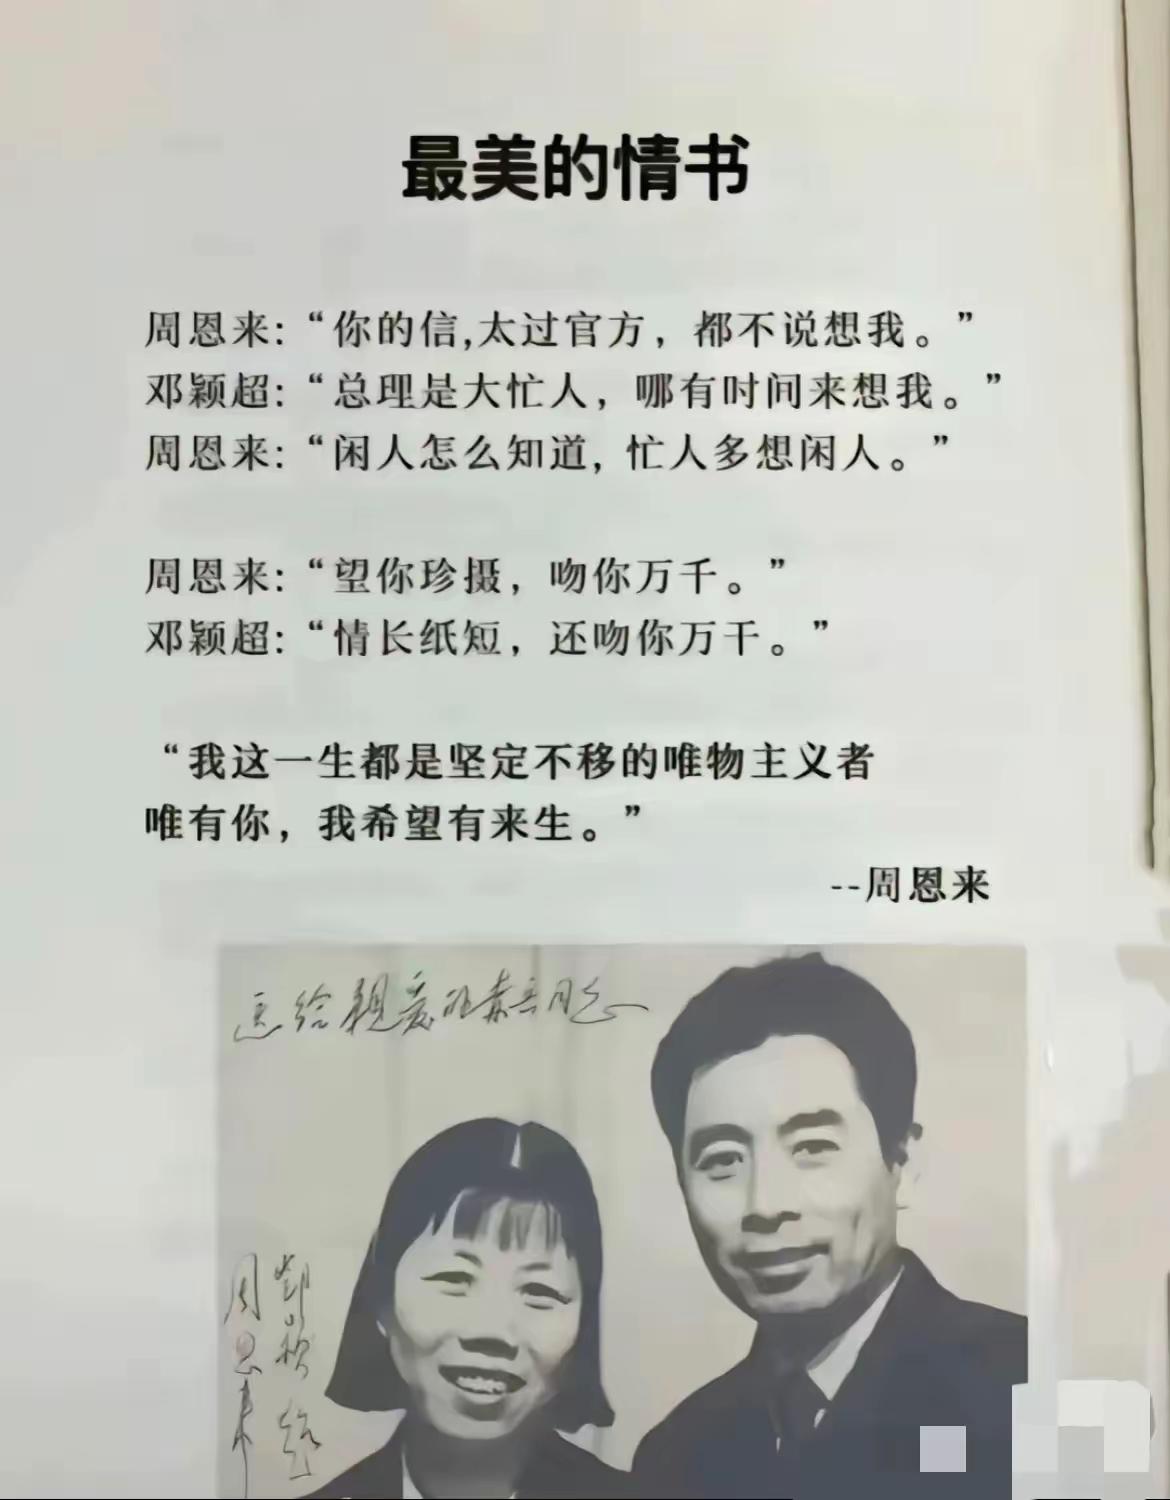 最美的情书
周恩来：“你的信,太过官方，都不说想我。”
邓颖超：“总理是大忙人，哪有时间来想我。”
周恩来：“闲人怎么知道，忙人多想闲人。”
周恩来：“望你珍摄，吻你万千。”
邓颖超：“情长纸短，还吻你万千。”
“我这一生都是坚定不移的唯物主义者
唯有你，我希望有来生。”
--周恩来
周恩来
邓颖超